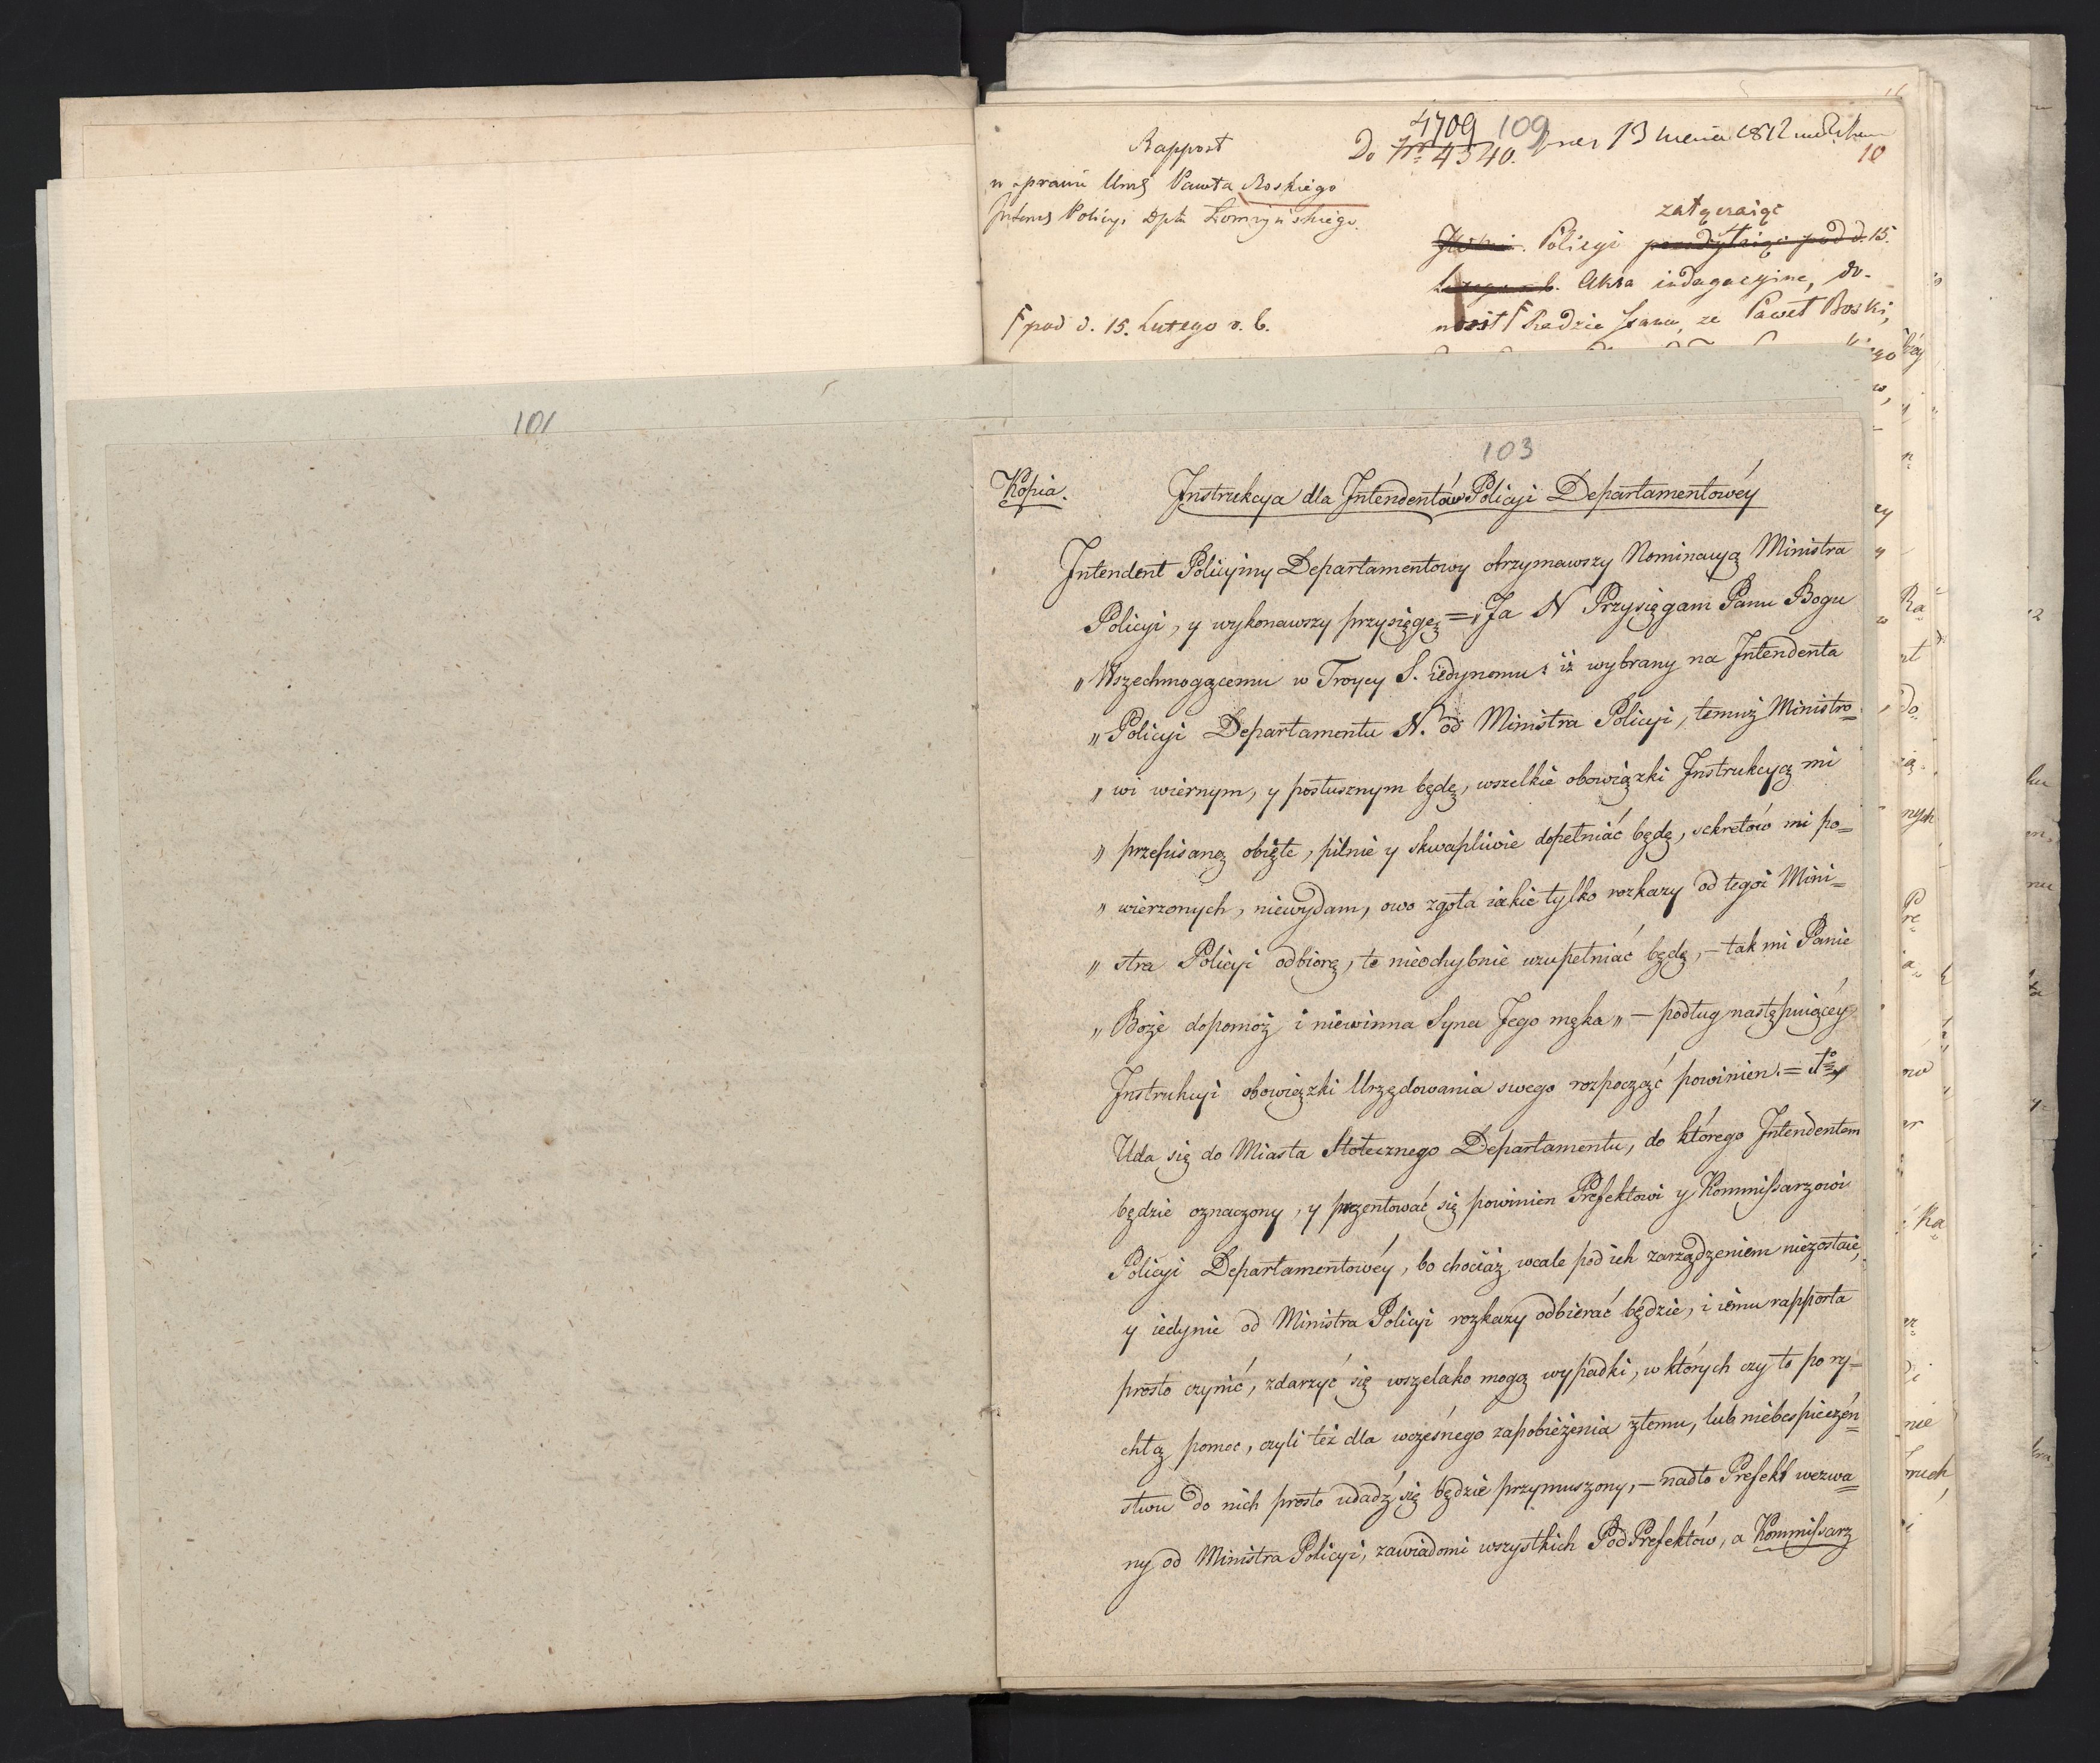 4709 109
Rapport
Do Nro 4340. 13 1812
10
w sprawie Urzę Pawła Boskiego
Policyi Dptu Łomżyńskiego.
załączaiąc
Policyi pod d. 15.
Akta indagacyine, do-
Ϝ pod d. 15. Lutego r. b.
nosił Ϝ Radzie Stanu, że Paweł Boski,
101
103
Kopia.
Instrukcya dla Intendentów Policyi Departamentowéy
Intendent Policyiny Departamentowy otrzymawszy Nominacyą Ministra
Policyi, y wykonawszy przysięgę = „Ja N Przysięgam Panu Bogu
„Wszechmogącemu w Troycy S. iedynemu: iż wybrany na Intendenta
„Policyi Departamentu N. od Ministra Policyi, temuż Ministro=
„wi wiernym, y posłusznym będę, wszelkie obowiązki Instrukcyą mi
„przepisaną obięte, pilnie y skwapliwie dopełniać będę, sekretów mi po=
„wierzonych, niewydam, owo zgoła iakie tylko rozkazy od tegoż Mini=
„stra Policyi odbiorę, te nieochybnie uzupełniać będę, – tak mi Panie
„Boże dopomóż i niewinna Syna Jego męka„ – podług następuiącéy
Instrukcyi obowiązki Urzędowania swego rozpocząć powinien. = 1o
Uda się do Miasta Stołecznego Departamentu, do którego Intendentem
będzie oznaczony, y prezentować się powinien Prefektowi y Kommissarzowi
Policyi Departamentowéy, bo chociaż wcale pod ich zarządzeniem niezostaie,
y iedynie od Ministra Policyi rozkazy odbierać będzie, i iemu rapporta
prosto czynić, zdarzyć się wszelako mogą wypadki, w których czy to po ry=
chłą pomoc, czyli też dla wczesnego zapobieżenia złemu, lub niebespieczén=
stwu do nich prosto udadź się będzie przymuszony, – nadto Prefekt wezwa=
ny od Ministra Policyi, zawiadomi wszystkich PodPrefektów, a Kommissarz